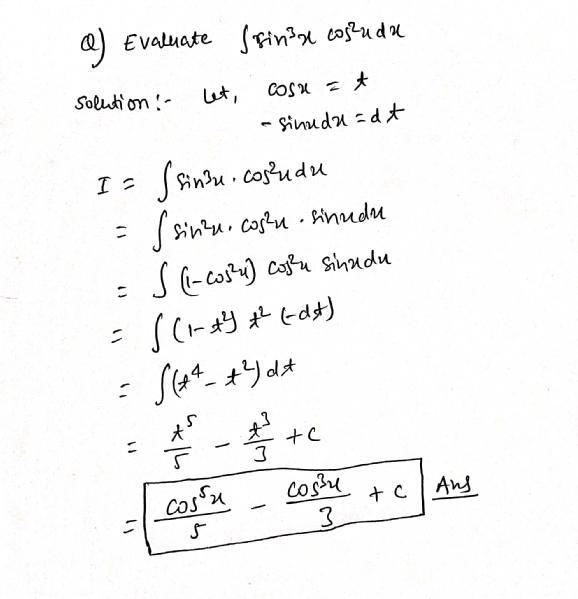 Q) Evaluate ∫sin³x cos²x dx
Solution:- Let, cosx = t
- sinxdx = dt
I = ∫ sin³x . cos²x dx
= ∫ sin²x . cos²x . sinxdx
= ∫ (1-cos²x) cos²x sinxdx
= ∫ (1-t²) t² (-dt)
= ∫(t⁴ - t²) dt
= t⁵/5 - t³/3 + c
= cos⁵x/5 - cos³x/3 + c Ans